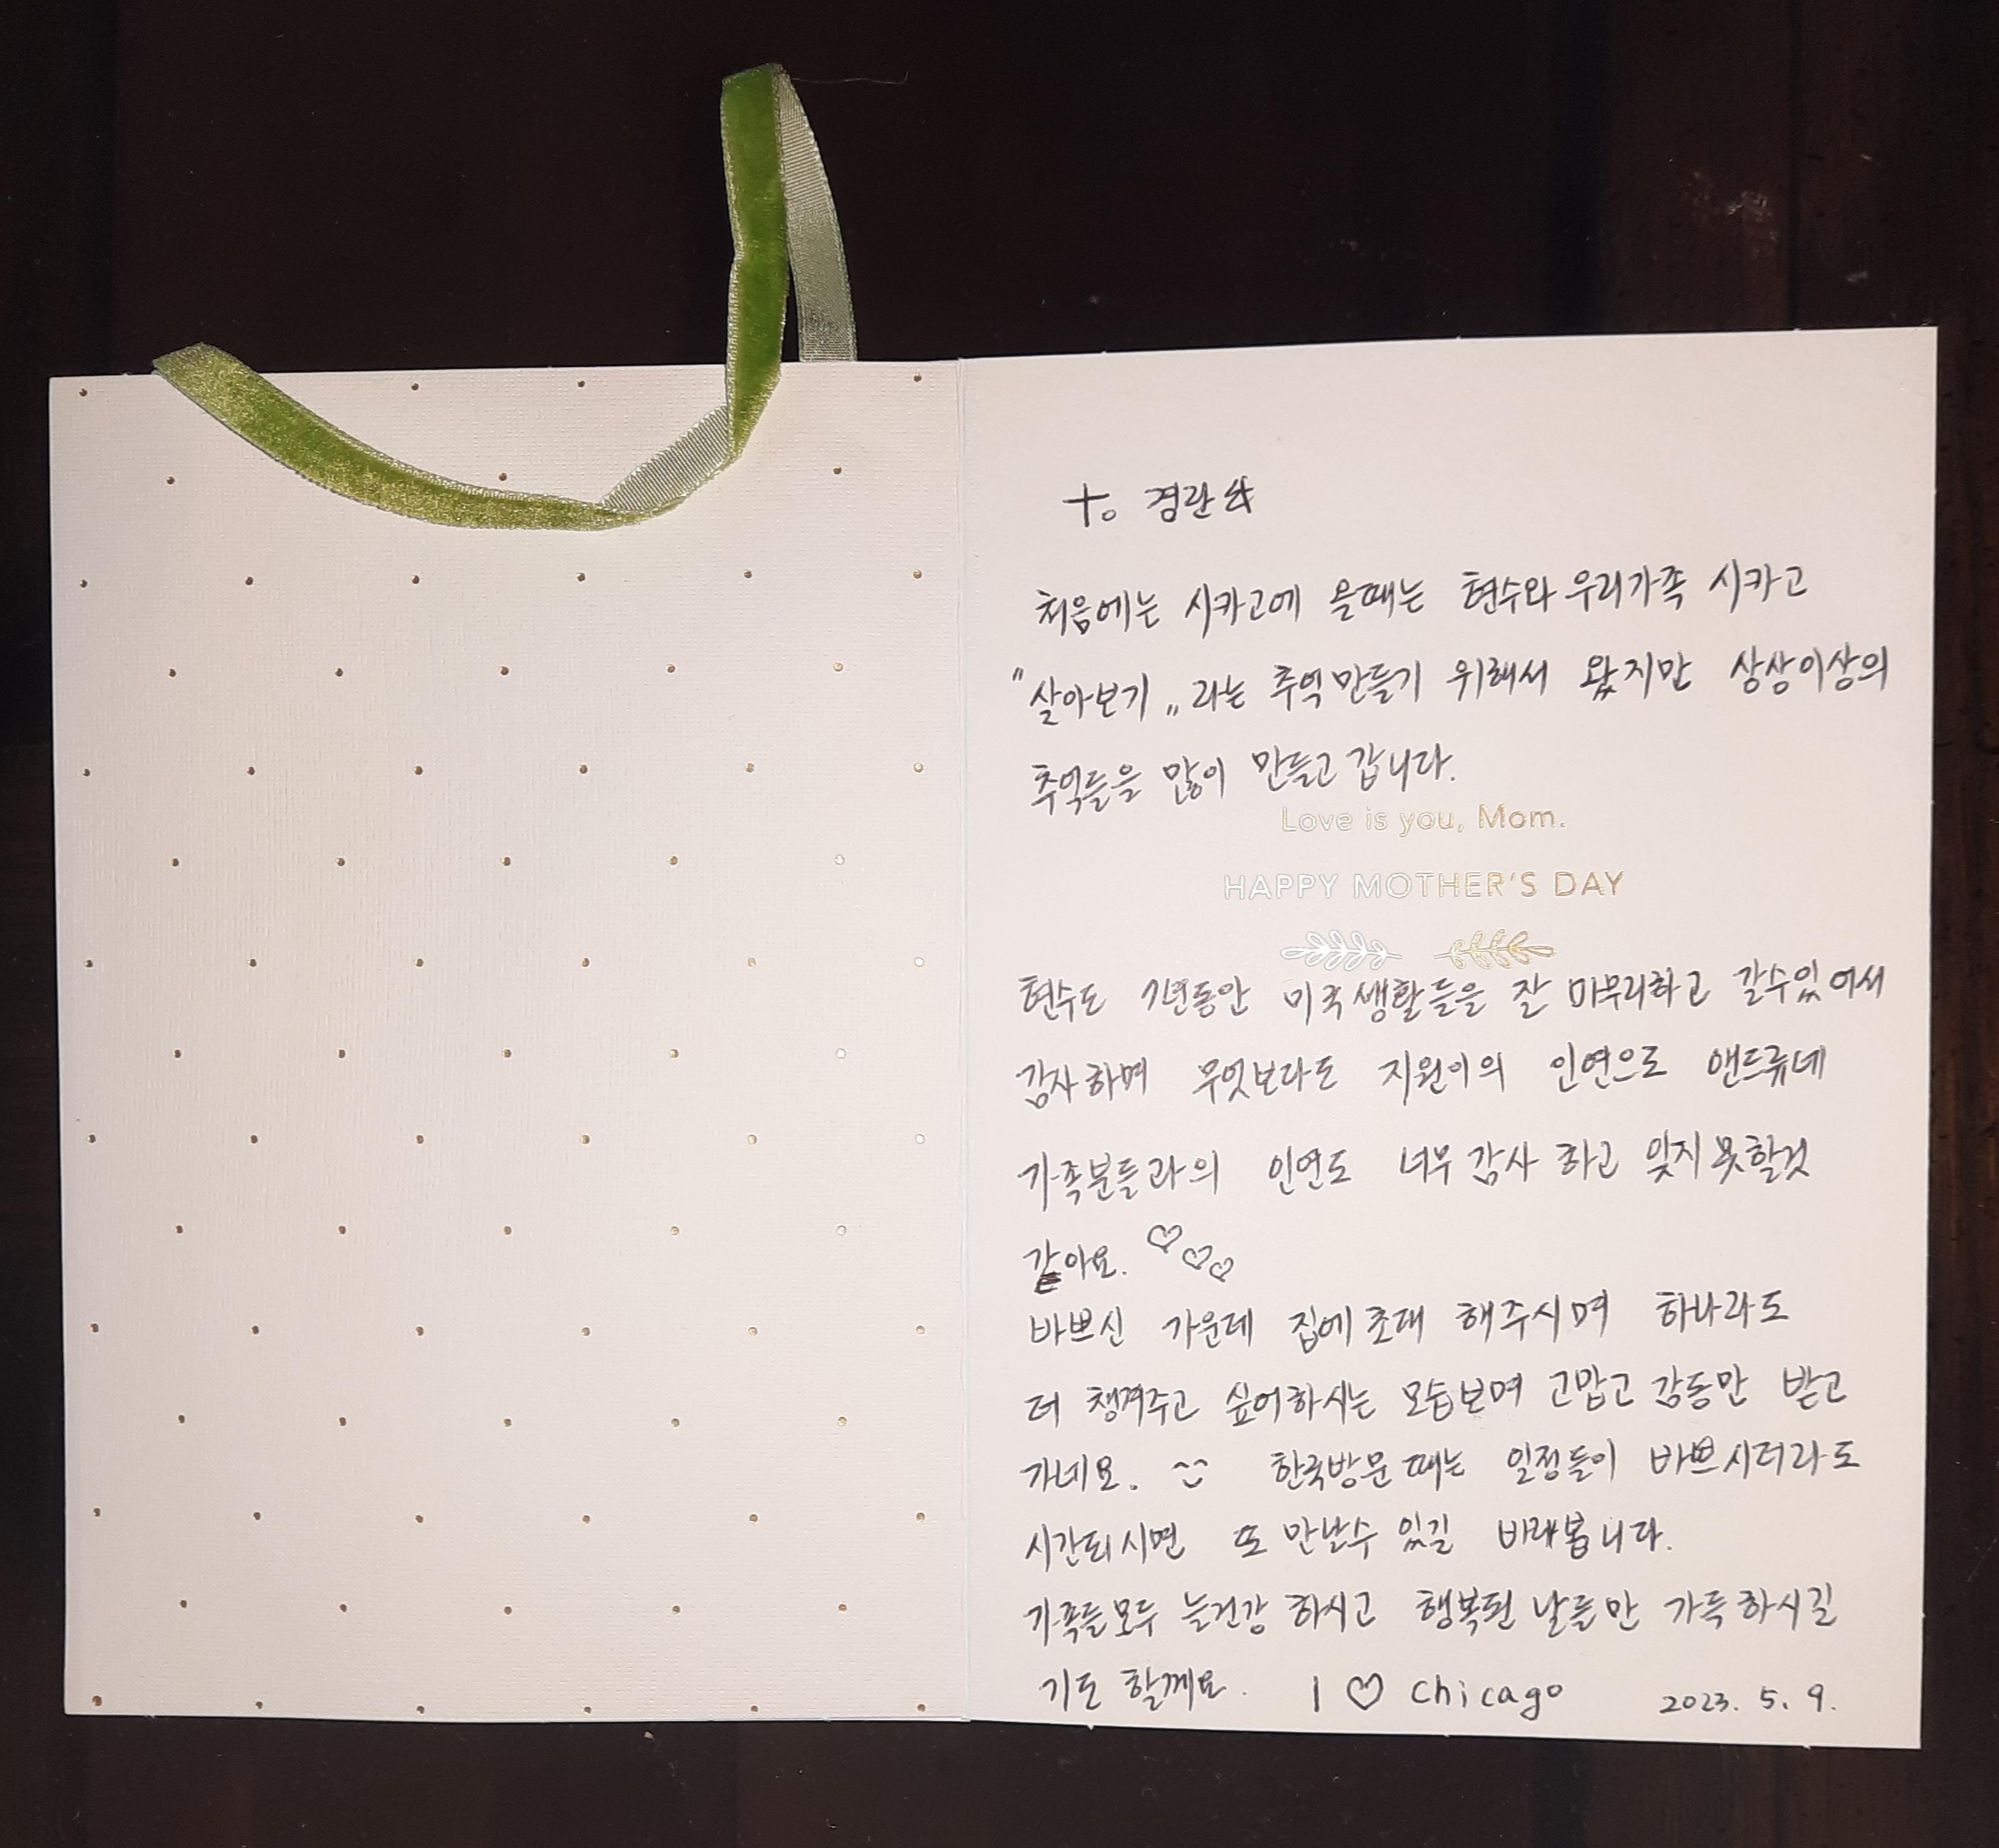 to 경란씨
처음에는 시카고에 올때는 현수와 우리가족 시카고
"살아보기„ 라는 추억만들기 위해서 왔지만 상상이상의
추억들을 많이 만들고 갑니다.
Love is you, Mom.
HAPPY MOTHER'S DAY
현수도 1년동안 미국생활들을 잘 마무리하고 갈수있어서
감사하며 무엇보다도 지원이의 인연으로 앤드류네
가족분들과의 인연도 너무 감사 하고 잊지못할것
같아요. ♡♡♡
바쁘신 가운데 집에 초대 해주시며 하나라도
더 챙겨주고 싶어하시는 모습보며 고맙고 감동만 받고
가네요. 한국방문 때는 일정들이 바쁘시더라도
시간되시면 또 만날수 있길 바래봅니다.
가족들모두 늘건강 하시고 행복된 날들만 가득하시길
기도 할께요. I ♡ chicago 2023. 5. 9.